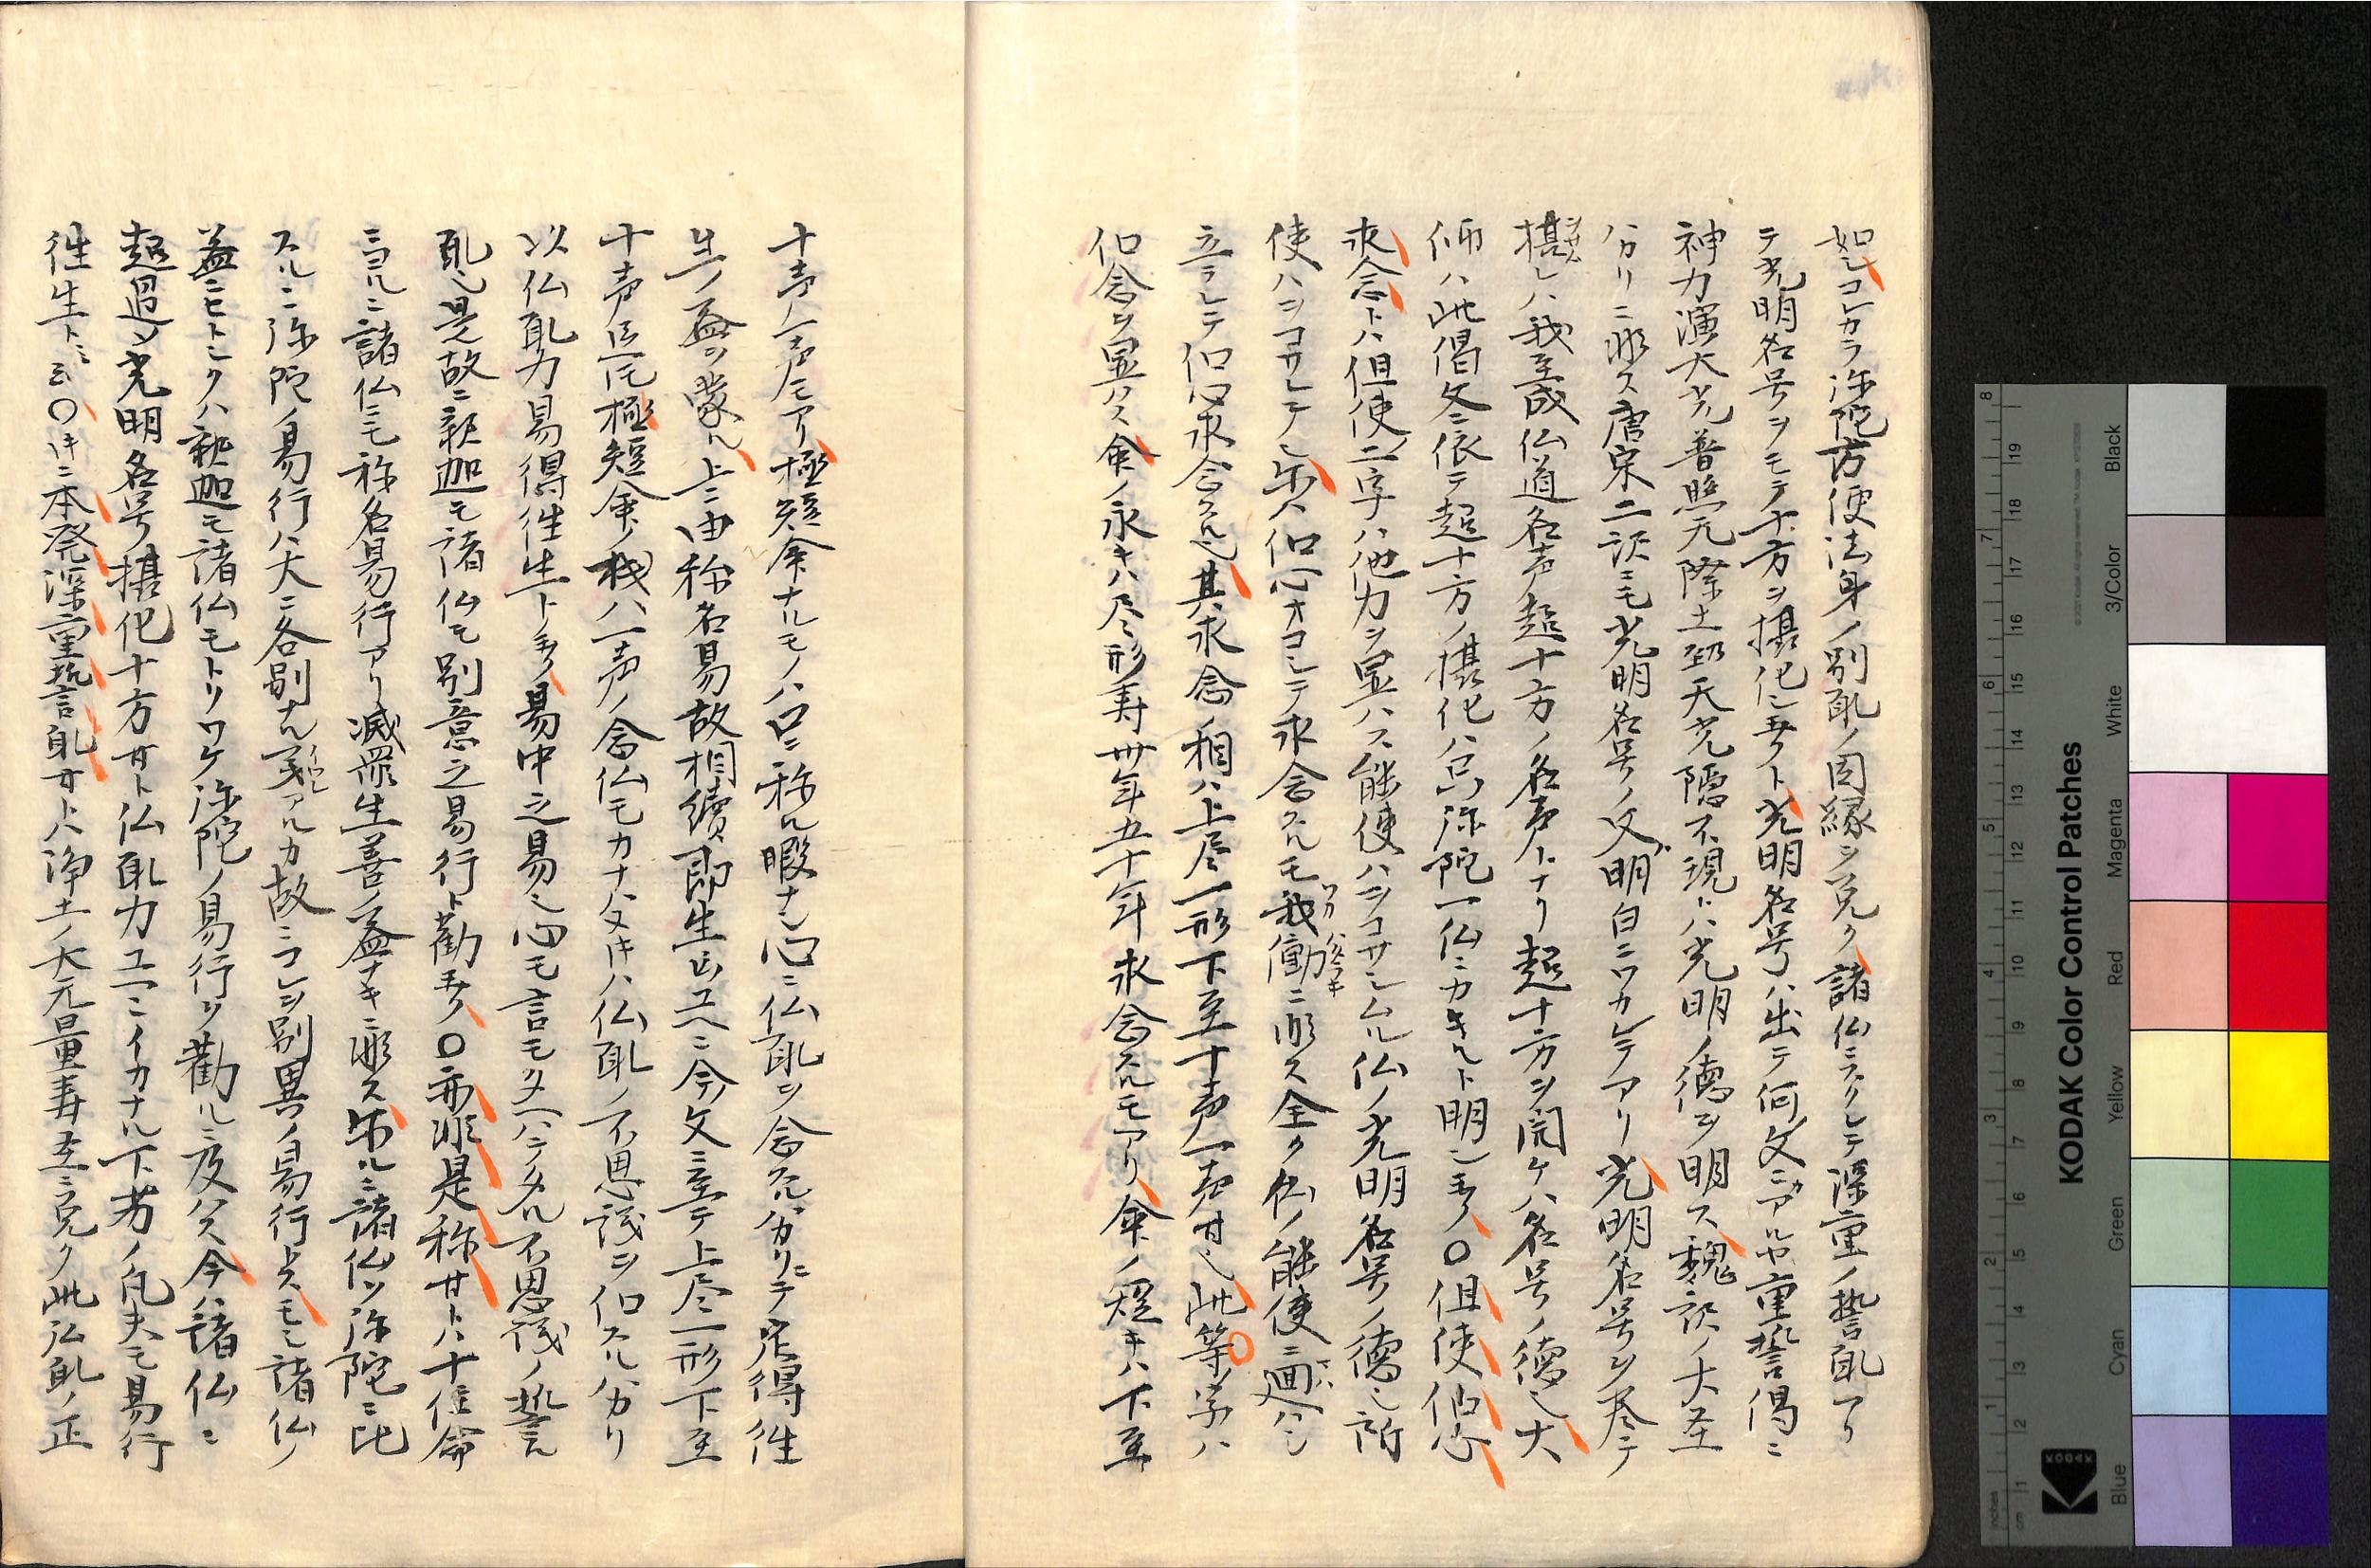 如シコレカラ弥陀方便法身ノ別願ノ因縁ヲ克ク諸仏ニスクレテ深重ノ誓願アリ
テ光明名号ヲモテ十方ヲ摂化シ玉フト光明名号ハ出テ何文ニアルヤ重誓偈ニ
神力演大光普照无際土乃至天光隠不現トハ光明ノ徳ヲ明ス魏訳ノ大圣
ハカリニ非ス唐宋二訳ニモ光明名号ノ文明白ニワカレテアリ光明名号ヲ挙テ
摂シハ我至成仏道名声超十方ノ名声トナリ超十方ヲ聞ケハ名号ノ徳也大
師ハ此偈文ニ依テ超十方ノ摂化ハ只弥陀一仏ニカキルト明シ玉フ〇但使信心
求念トハ但使二字ハ他力ヲ显ハス能使ハヲコサシムル仏ノ光明名号ノ徳也所
使ハヲコサレテシ出ス信心オコシテ求念スルモ我働ニ非ス全ク仏ノ能使ニ廻ハシ
立ラレテ信心求念スル也其求念ノ相ハ上尽一形下至十声一声廿也此等ノ字ハ
信念ヲ显ハス命ノ永キハ尽形寿卅年五十年求念スルモアリ命ノ短キハ下至
十声一声モアリ極短命ナルモノハ口ニ称ル暇ナシ心ニ仏願ヲ念スルハカリニテ定得往
生ノ益ヲ蒙ル上ニ由称名易故相續即生ト云ユヘニ今文ニ至テ上尽一形下至
十声ト云ヘ𪜈極短命ノ機ハ一声ノ念仏モカナハヌ𪜈ハ仏願ノ不思議ヲ信スルハカリ
以仏願力易得往生ト玉フ易中之易也心モ言モタヘハテタル不思議ノ誓
願也是故ニ釈迦モ諸仏モ別意之易行ト勧玉フ〇亦非是称廿トハ十住論
ニヨルニ諸仏ニモ称名易行アリ滅罪生善ノ益ナキニ非ス出ルニ諸仏ヲ弥陀ニ比
スルニ弥陀ノ易行ハ大ニ各別ナル〳〵アルカ故ニコレヲ別異ノ易行トスモシ諸仏ノ
益ニヒトシクハ釈迦モ諸仏モトリワケ弥陀ノ易行ヲ勧ルニ及ハス今ハ諸仏ニ
超過シ光明名号摂化十方廿ト仏願力ユヘニイカナル下劣ノ凡夫モ易行
往生トミ云〇𪜈ニ本発深重誓願廿トハ浄土ノ大无量寿玊ニ克ク此弘願ノ正
KODAK Color Control Patches
Black
3/Color
White
Magenta
Red
Yellow
Green
Cyan
Blue